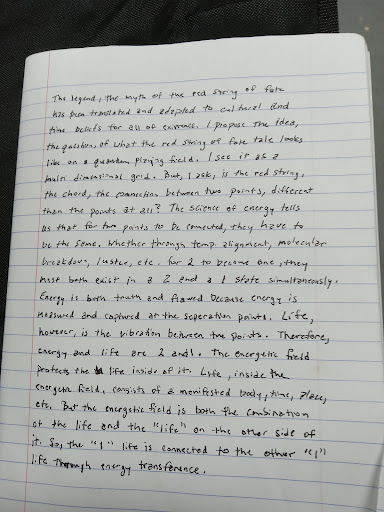 The legend, the myth of the red string of fate
has been translated and adapted to cultural and
time beliefs for all of existence. I propose the idea,
the question, of what the red string of fate tale looks
like on a quantum playing field. I see it as a
multi dimensional grid. But, I ask, is the red string,
the chord, the connection between two points, different
than the points at all? The science of energy tells
us that for two points to be connected, they have to
be the same. Whether through temp alignment, molecular
breakdown, luster, etc. for 2 to become one, they
must both exist in a 2 and a 1 state simultaneously.
Energy is both truth and flawed because energy is
measured and captured at the seperation points. Life,
however, is the vibration between the points. Therefore,
energy and life are 2 and 1. The energetic field
protects the life inside of it. Life, inside the
energetic field, consists of a manifested body, time, place,
etc. But the energetic field is both the combination
of the life and the "life" on the other side of
it. So, the "1" life is connected to the other "1"
life through energy transference.